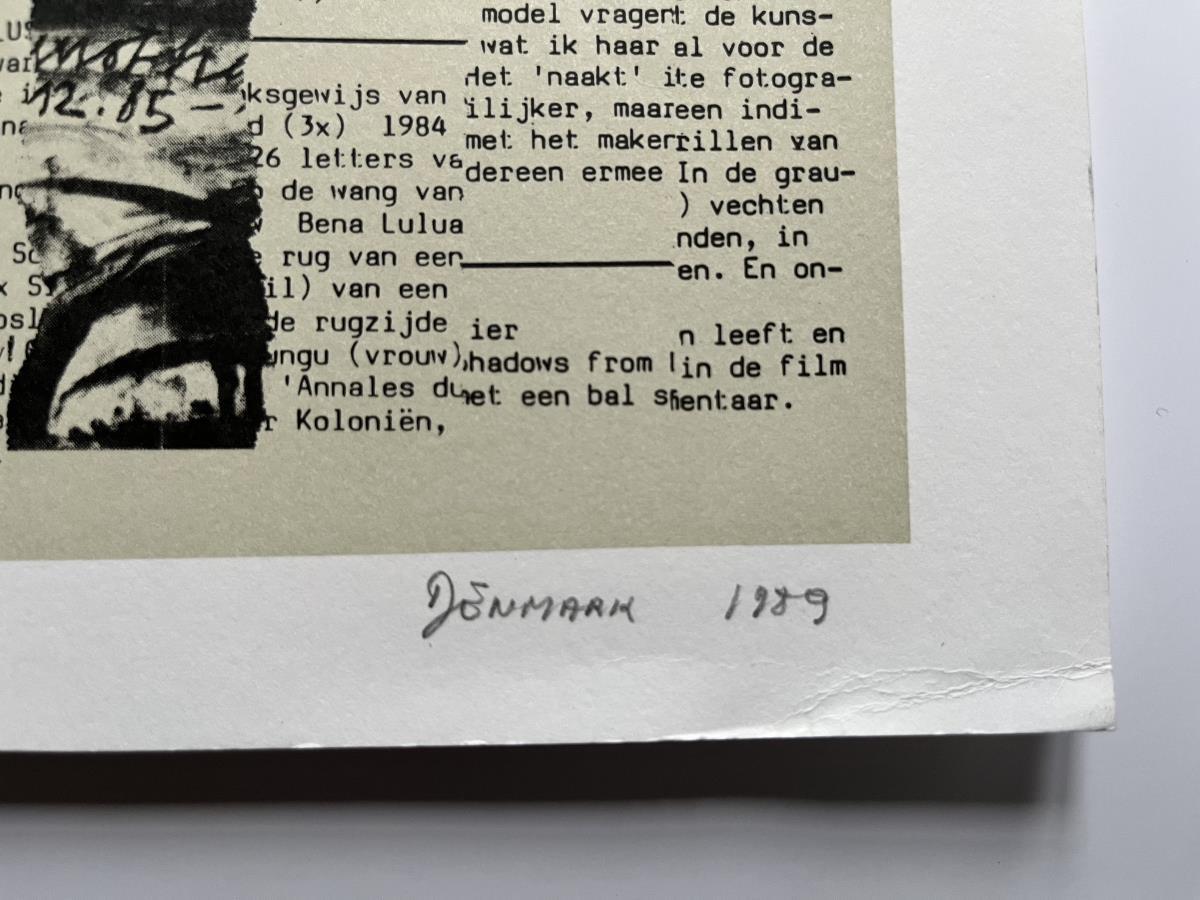 model vragent de kuns-
wat ik haar al voor de
'naakt' ite fotogra-
ilijker, maareen indi-
met het makerrillen van
dereen ermee In de grau-
) vechten
nden, in
en. En on-
ier n leeft en
hadows from in de film
et een bal
entaar.
12.85-
ksgewijs van
d (3x) 1984
26 letters va
de wang van
Bena Lulua
rug van een
il) van een
de rugzijde
ungu (vrouw),
'Annales du
r Koloniën,
DËNMARK 1989